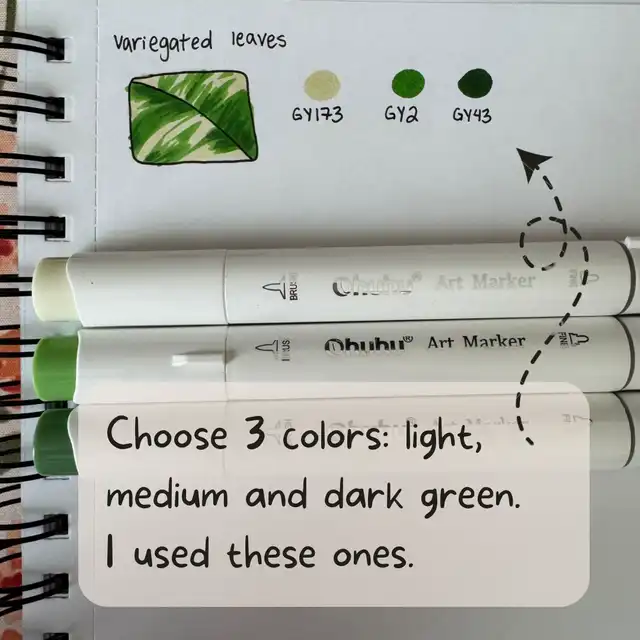 variegated leaves
GY173 GY2 GY43
BRUSH Ohuhu® Art Marker FINE
Ohuhu® Art Marker FINE
Choose 3 colors: light,
medium and dark green.
I used these ones.